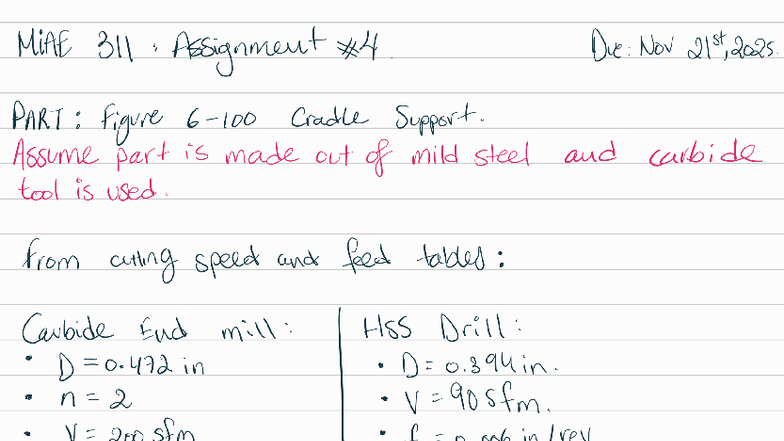 MIAE 311 : Assignment #4.
Due: Nov 21st, 2025.
PART: Figure 6-100 Cradle Support.
Assume part is made out of mild steel and carbide
tool is used.
From cutting speed and feed tables:
Carbide End mill:
• D = 0.472 in
• n = 2
• V = 200 sfm
HSS Drill:
• D = 0.394 in.
• V = 90 sfm.
• f = 0.006 in/rev